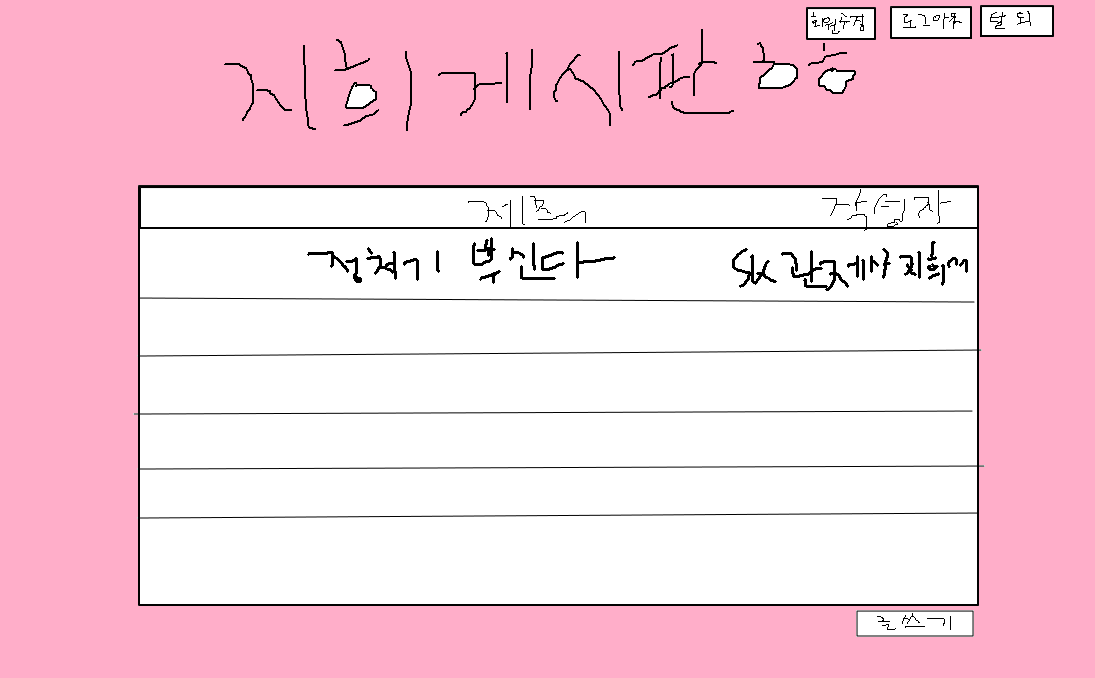 회원수정 로그아웃 탈퇴
지희게시판ㅎㅎ
제목 작성자
정처기 부신다 SK관제사지희
글쓰기